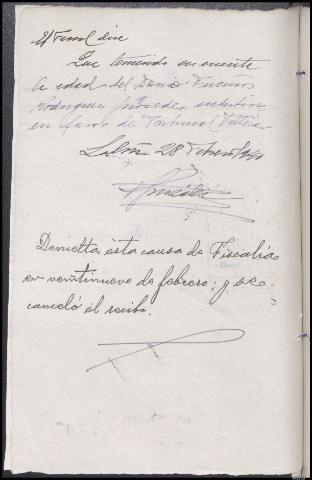 El Fiscal dice
Que teniendo en cuenta
la edad del Dario
Rodriguez procede
en favor de Tribunal Tutelar
28 Febrero 1940
Devuelta esta causa de Fiscalía
en veintinueve de febrero; y se
canceló el recibo.